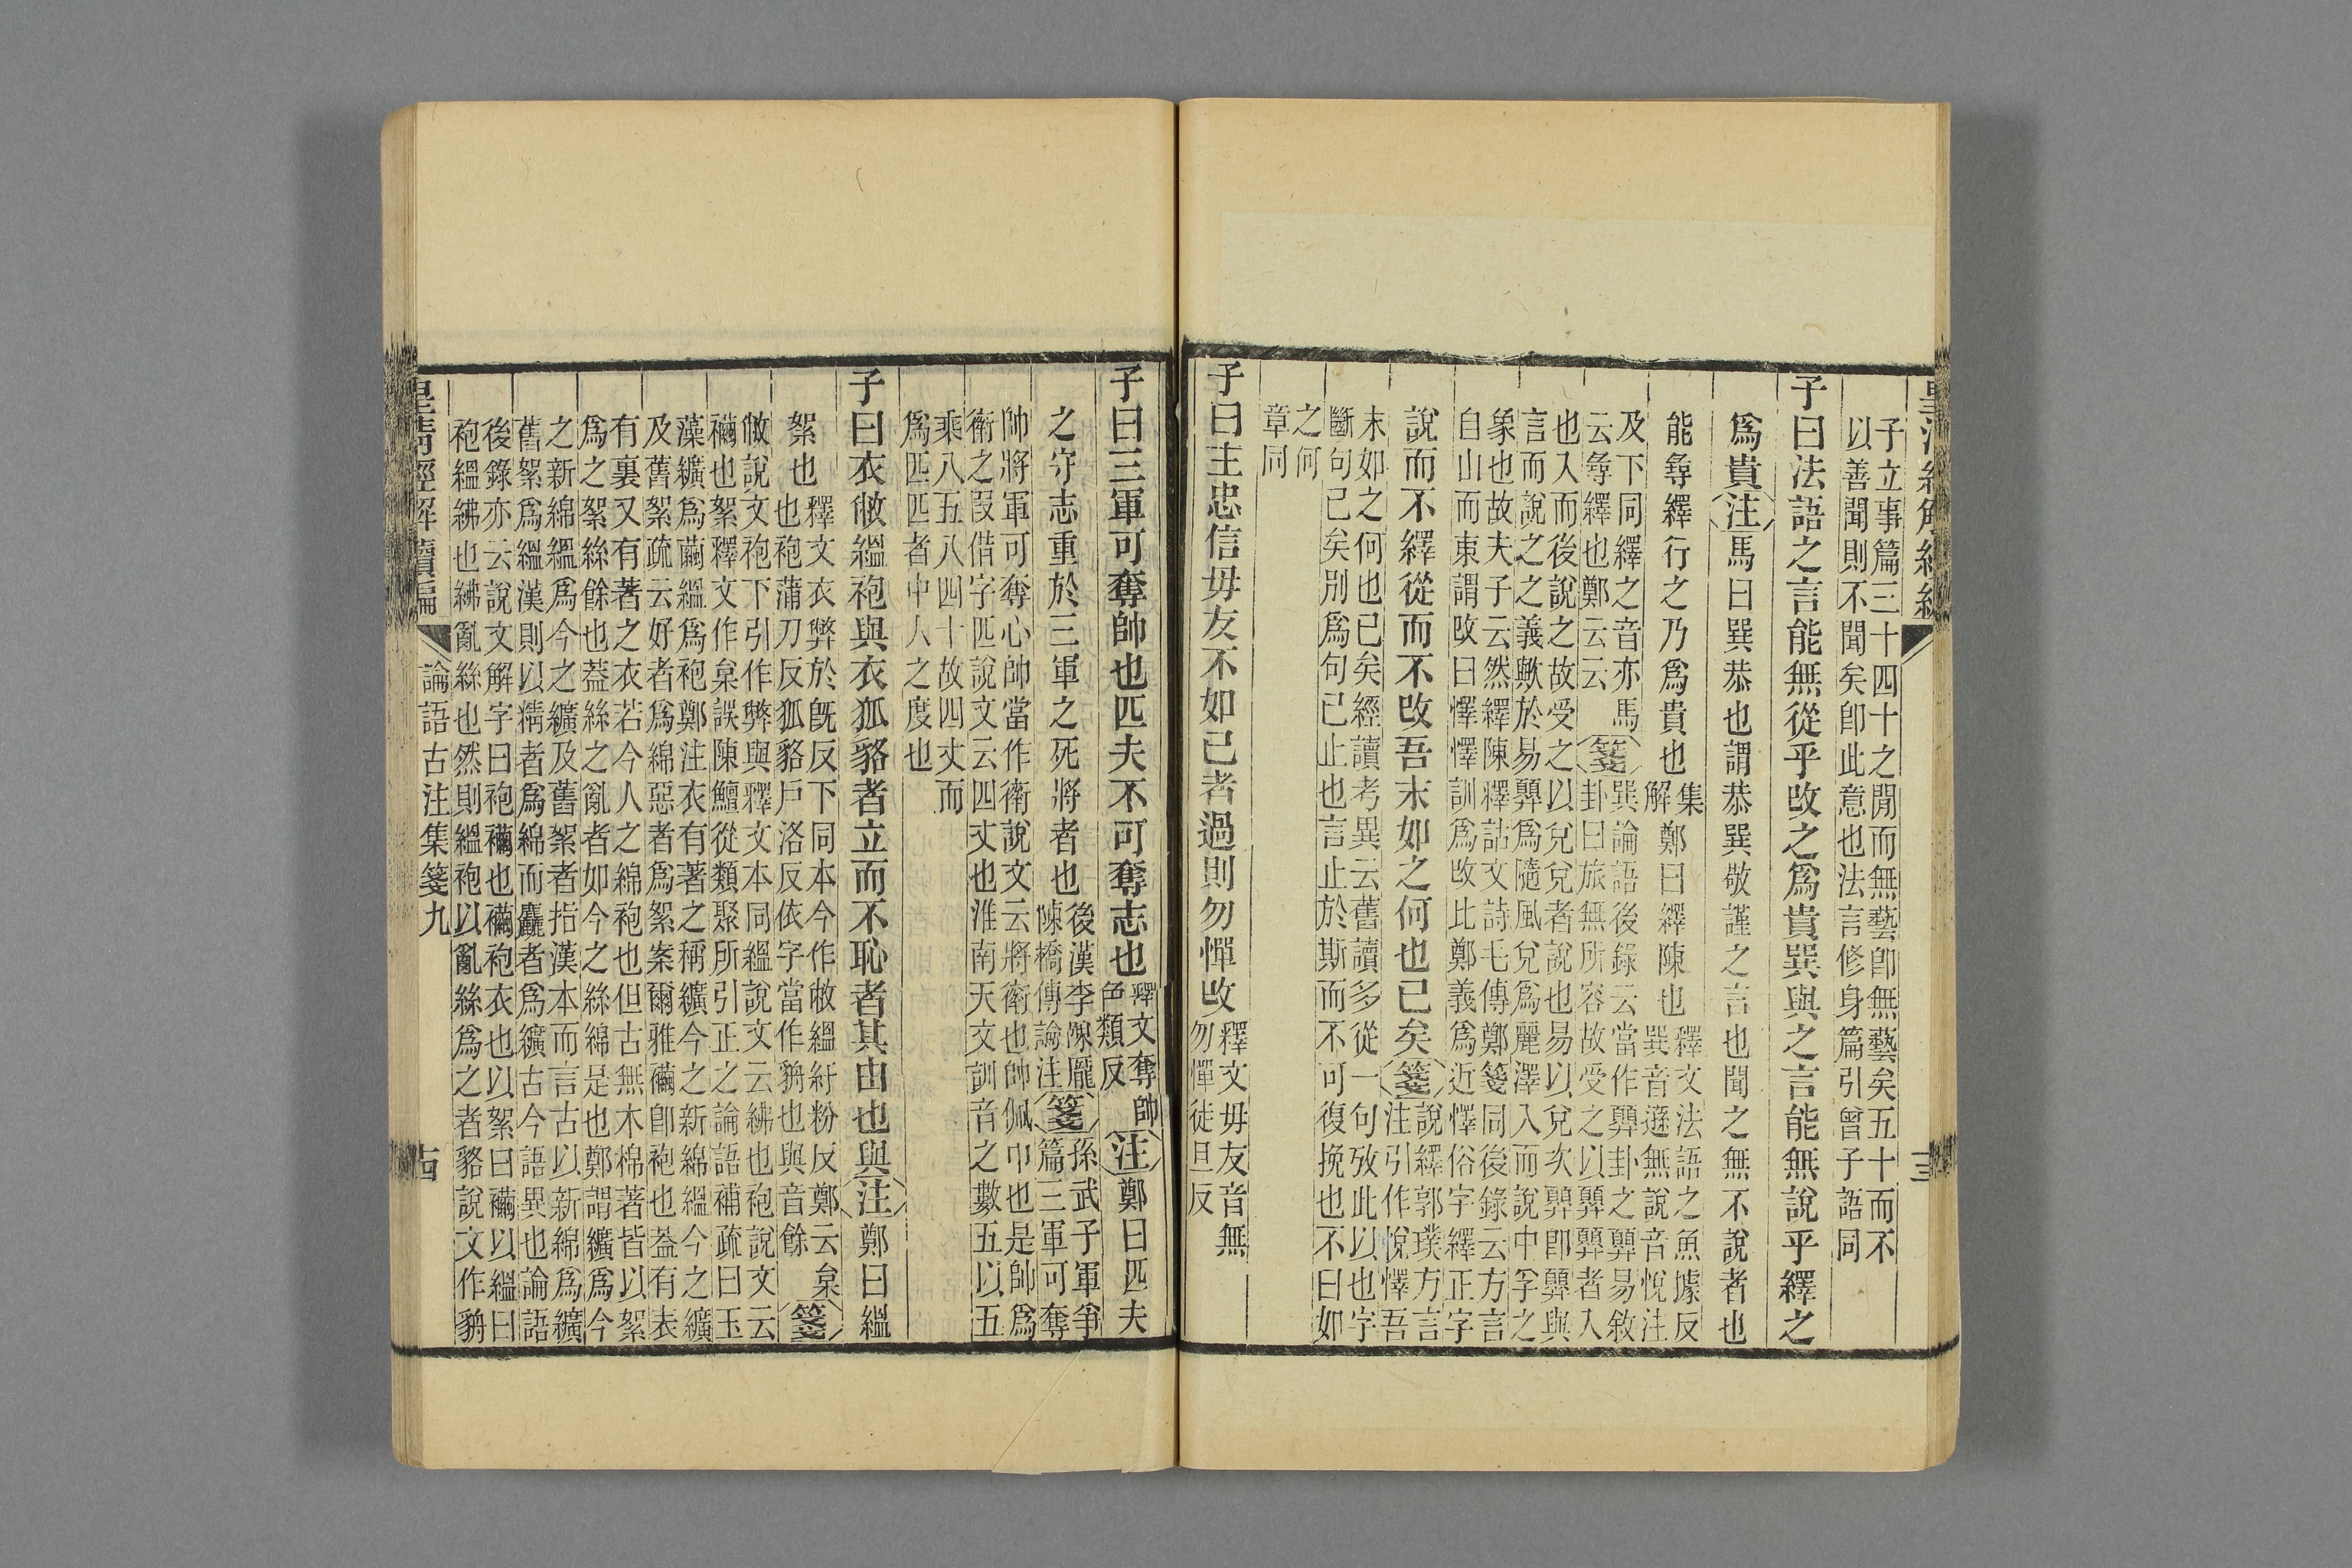 子立事篇三十四十之閒而無藝卽無藝矣五十而不
以善聞則不聞矣卽此意也法言修身篇引曾子語同
子曰法語之言能無從乎改之爲貴巽與之言能無說乎繹之
爲貴注馬曰巽恭也謂恭巽敬謹之言也聞之無不說者也
能㝷繹行之乃爲貴也集解鄭曰繹陳也釋文法語之魚據反
巽音遜無說音悅注
及下同繹之音亦馬
云㝷繹也鄭云云箋巽論語後錄云當作顨卦之顨易敘
卦曰旅無所容故受之以顨顨者入
也入而後說之故受之以兌兌者說也易以兌次顨卽顨與
言而說之之義歟於易顨爲隨風兌爲麗澤入而說中孚之
象也故夫子云然繹陳釋詁文詩毛傳鄭箋同後錄云方言
自山而東謂改曰懌懌訓爲改此鄭義爲近懌俗字繹正字
說而不繹從而不改吾末如之何也已矣箋說繹郭璞方言
注引作悅懌吾
末如之何也已矣經讀考異云舊讀多從一句攷此以也字
斷句已矣別爲句已止也言止於斯而不可復挽也不曰如
之何
章同
子曰主忠信毋友不如已者過則勿憚改釋文毋友音無
勿憚徒旦反
子曰三軍可奪帥也匹夫不可奪志也釋文奪帥
色類反注鄭曰匹夫
之守志重於三軍之死將者也後漢李陳龐
陳橋傳論注箋孫武子軍爭
篇三軍可奪
帥將軍可奪心帥當作䘖說文云將䘖也帥佩巾也是帥爲
䘖之叚借字匹說文云四丈也淮南天文訓音之數五以五
乘八五八四十故四丈而
爲匹匹者中人之度也
子曰衣敝縕袍與衣狐貉者立而不恥者其由也與注鄭曰縕
絮也釋文衣弊於旣反下同本今作敝縕紆粉反鄭云枲
也袍蒲刀反狐貉戶洛反依字當作貈也與音餘箋
敝說文袍下引作弊與釋文本同縕說文云紼也袍說文云
襺也絮釋文作枲誤陳鱣從類聚所引正之論語補疏曰玉
藻纊爲繭縕爲袍鄭注衣有著之稱纊今之新綿縕今之纊
及舊絮疏云好者爲綿惡者爲絮案爾雅襺卽袍也葢有表
有裏又有著之衣若今人之綿袍也但古無木棉著皆以絮
爲之絮絲餘也葢絲之亂者如今之絲綿是也鄭謂纊爲今
之新綿縕爲今之纊及舊絮者指漢本而言古以新綿爲纊
舊絮爲縕漢則以精者爲綿而麤者爲纊古今語異也論語
後錄亦云說文解字曰袍襺也襺袍衣也以絮曰襺以縕曰
袍縕紼也紼亂絲也然則縕袍以亂絲爲之者貉說文作貈
皇淸經解續編
論語古注集箋九